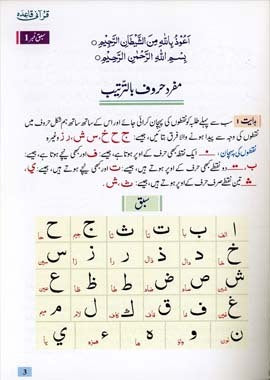 قرآنی قاعدہ
سبق نمبر 1
اَعُوْذُ بِاللّٰهِ مِنَ الشَّيْطَانِ الرَّجِيْمِ
بِسْمِ اللّٰهِ الرَّحْمٰنِ الرَّحِيْمِ
مفرد حروف بالترتیب
ہدایت ۱ سب سے پہلے طلبہ کو نقطوں کی پہچان کرائی جائے اور اس کے ساتھ ساتھ ہم شکل حروف میں
نقطوں کی وجہ سے پیدا ہونے والا فرق بتائیں، جیسے: ج ح خ، س ش، ر ز وغیرہ
نقطوں کی پہچان، ایک نقطہ کبھی حرف کے اوپر ہوتا ہے، جیسے: ف اور کبھی نیچے ہوتا ہے، جیسے:
ب، دو نقطے کبھی حرف کے اوپر ہوتے ہیں، جیسے: ت اور کبھی نیچے ہوتے ہیں، جیسے: ي،
تین نقطے صرف حرف کے اوپر ہوتے ہیں، جیسے: ث، ش
سبق
ا ب ت ث ج ح
خ د ذ ر ز س
ش ص ض ط ظ ع
غ ف ق ك ل م
ن و ه ء ي
3